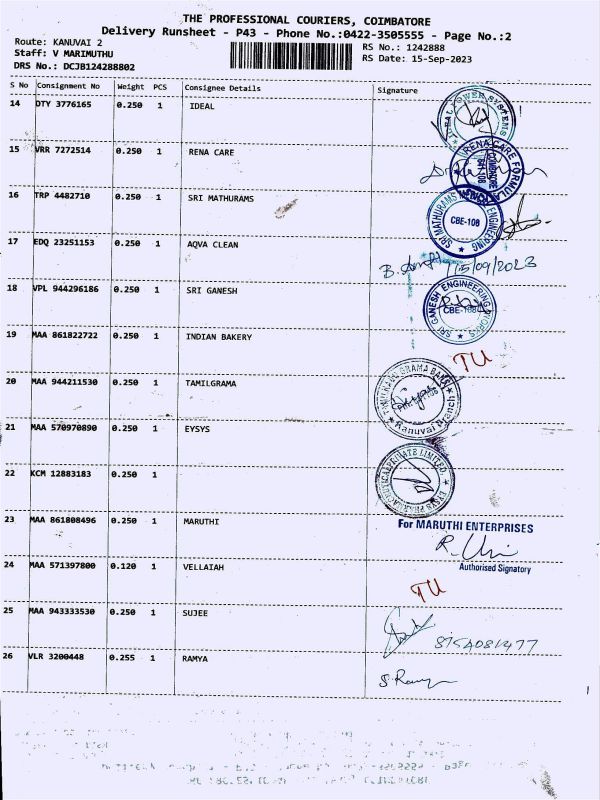 THE PROFESSIONAL COURIERS, COIMBATORE
Delivery Runsheet - P43 - Phone No.:0422-3505555 - Page No.:2
Route: KANUVAI 2
Staff: V MARIMUTHU
DRS No.: DCJB124288802
RS No.: 1242888
RS Date: 15-Sep-2023
S No Consignment No Weight PCS Consignee Details Signature
14 DTY 3776165 0.250 1 IDEAL
15 VRR 7272514 0.250 1 RENA CARE
16 TRP 4482710 0.250 1 SRI MATHURAMS
CBE-108
17 EDQ 23251153 0.250 1 AQVA CLEAN
15/09/2023
18 VPL 944296186 0.250 1 SRI GANESH
SRI GANESH ENGINEERING WORKS
CBE-108
19 MAA 861822722 0.250 1 INDIAN BAKERY
TU
20 MAA 944211530 0.250 1 TAMILGRAMA
21 MAA 570970890 0.250 1 EYSYS
22 KCM 12883183 0.250 1
23 MAA 861808496 0.250 1 MARUTHI
For MARUTHI ENTERPRISES
Authorised Signatory
24 MAA 571397800 0.120 1 VELLAIAH
TU
25 MAA 943333530 0.250 1 SUJEE
26 VLR 3200448 0.255 1 RAMYA